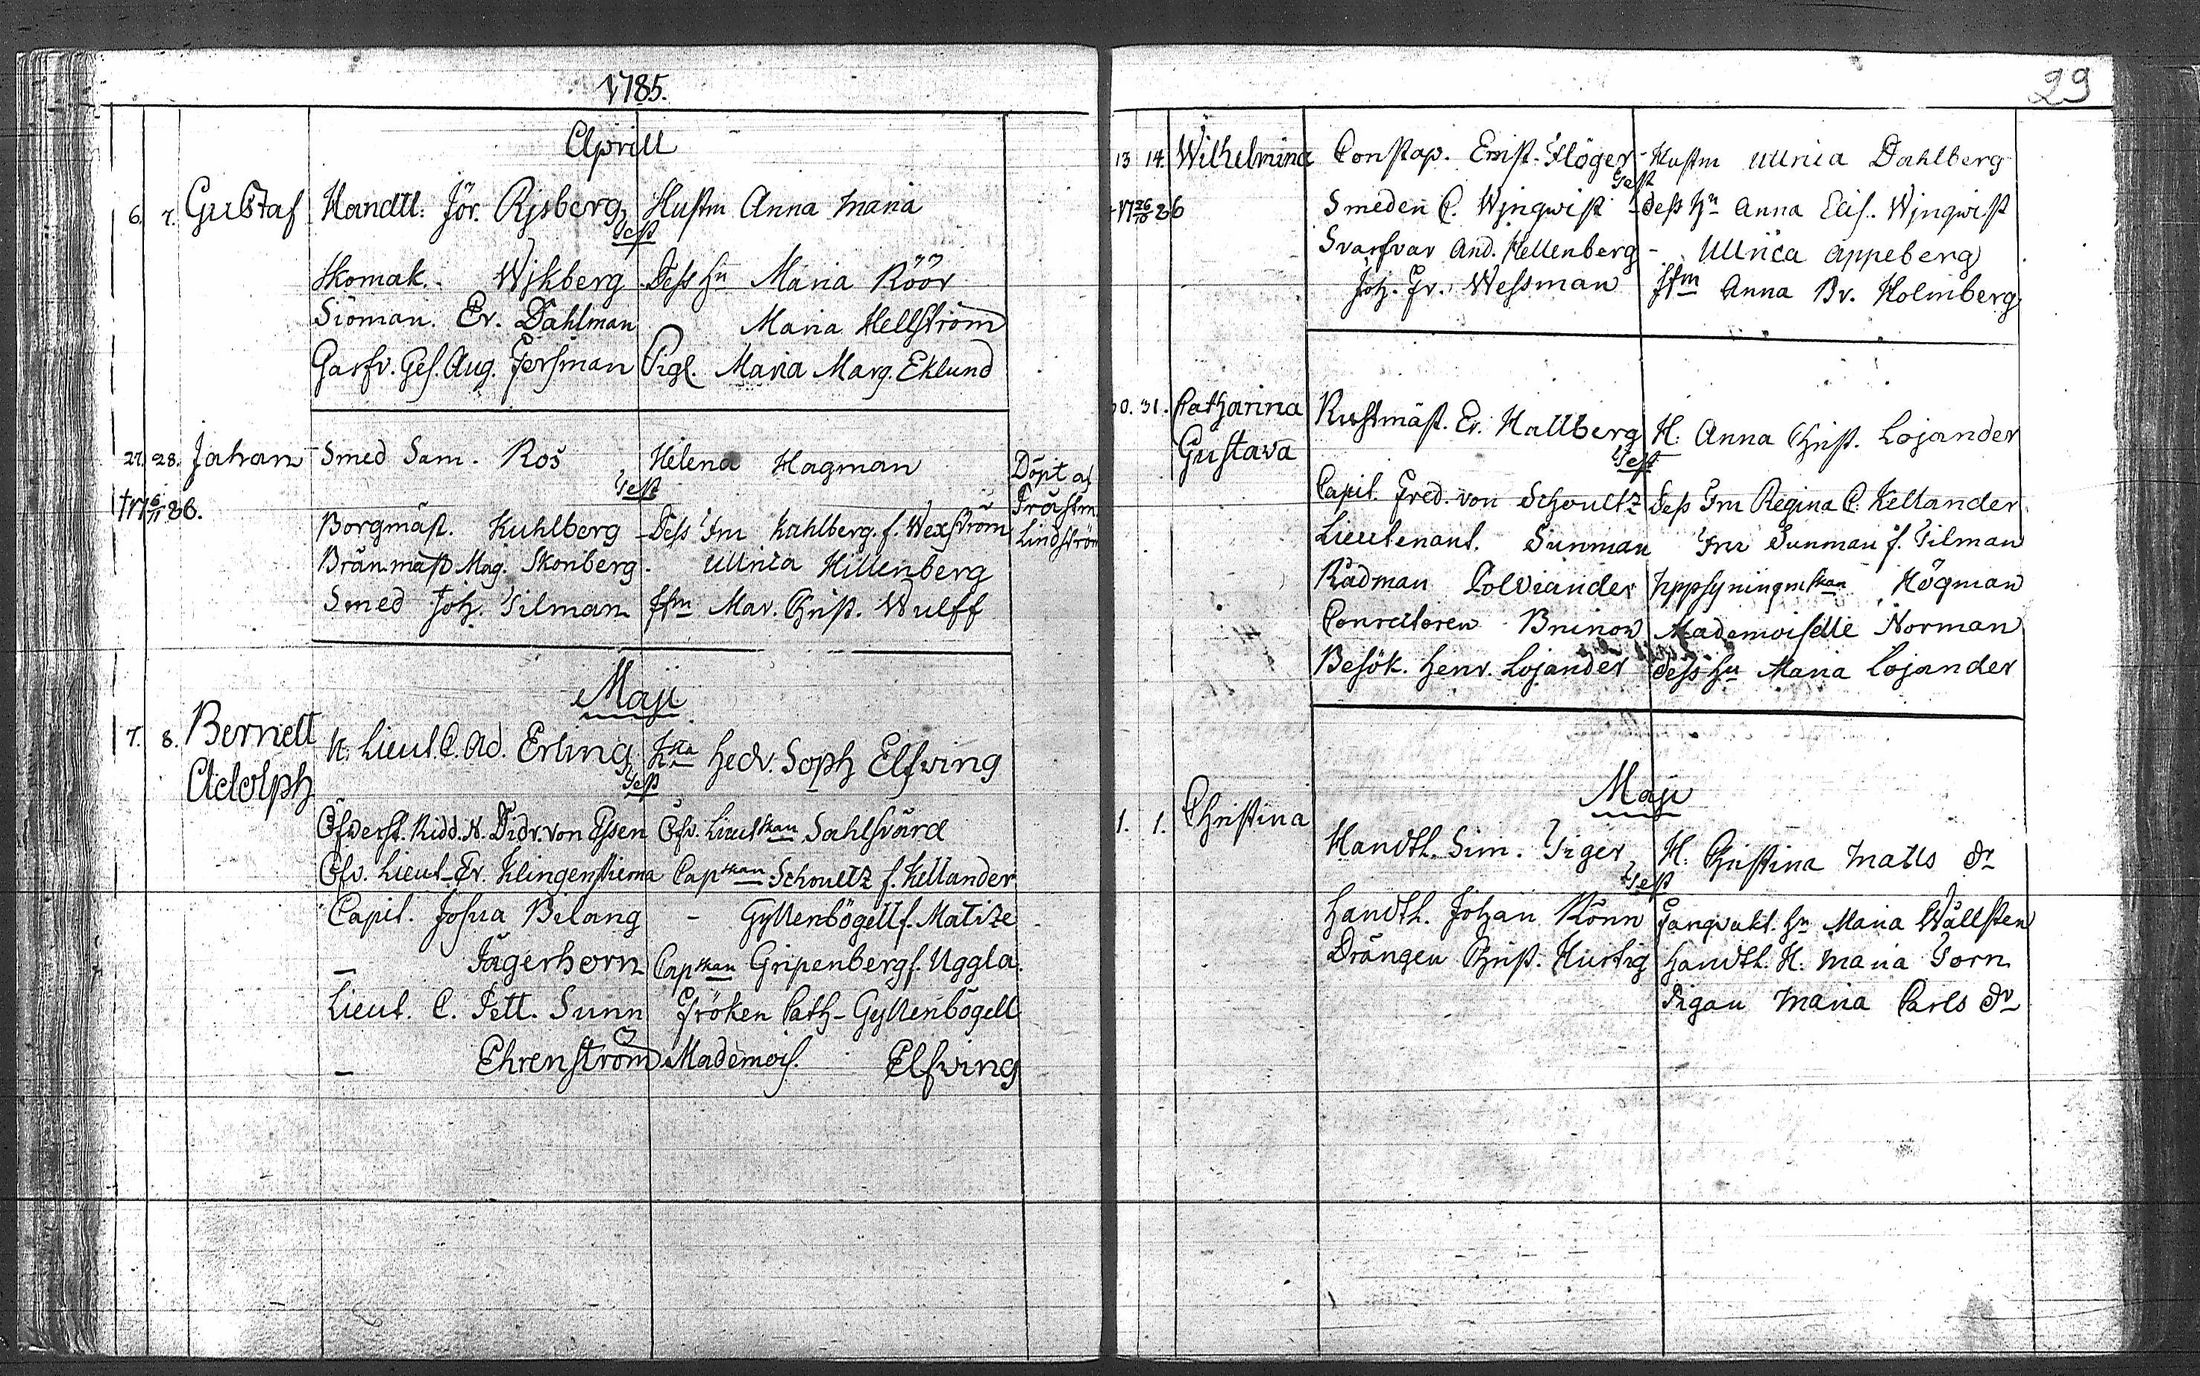 1785.
Aprill
6. 7. Gustaf Handtl: Jör. Rjsberg Hustru Anna Maria
Test
Skomak. Wjkberg Dess hu Maria Röör
Siöman. Er. Dahlman Maria Hellström
Garfv. Ges. Aug. Forsman Pig. Maria Marg. Eklund
27. 28. Johan Smed Sam. Ros Helena Hagman
Test
Döpt af Prästm Lindström
86.
Borgmäst. Kuhlberg Dess Fru Kuhlberg. f. Wexström
Bränmäst Mag. Skonberg. Ullrica Hillenberg
Smed Joh. Tilman Jfru Mar. Christ. Wulff
Maji
7. 8. Bernett Adolph H. Lieut. C. Ad. Erling Hedv. Soph Elfving
Test
Öfverst. Ridd. H. Didr. von Essen Öfv. Lieutskan Sahlsvärd
Öfv. Lieut Fr. Klingenstierna Capskan Schoultz f. Kellander
Capit. Josua Bilang - Gyllenbögell f. Matize
– Jägerhorn Capskan Gripenberg f. Uggla.
Lieut. C. Pett. Sunn Fröken Cath- Gyllenbögell
– Ehrenström Mademois. Elfving
29
13 14 Wilhelmina Constap. Ernst. Flöger - Hustru Ullrica Dahlberg
Test
86
Smeden C. Wjnqwist - Dess Hu Anna Elis. Wjnqwist
Svarfvar And. Hellenberg - Ullrica Appeberg
Joh. Fr. Wessman Jfru Anna Br. Holmberg
30. 31. Catharina Gustava Rustmäst. Er. Hallberg H. Anna Christ. Lojander
Test
Capit. Fred. von Schoultz Dess Fru Regina C. Kellander
Lieutenant. Sunman Fru Sunman f. Tilman
Rådman Polviander Uppsyningmskan Högman
Conrectoren Brunow Mademoiselle Norman
Besök. Henr. Lojander Dess hu Maria Lojander
Maji
1. 1. Christina Handtl. Sim. Tiger H. Christina Matts dr
Test
Handtl. Johan Könn Fångvakt. hu Maria Wällsten
Drängen Christ. Hurtig Handtl. H. Maria Torn
Pigan Maria Carls dr